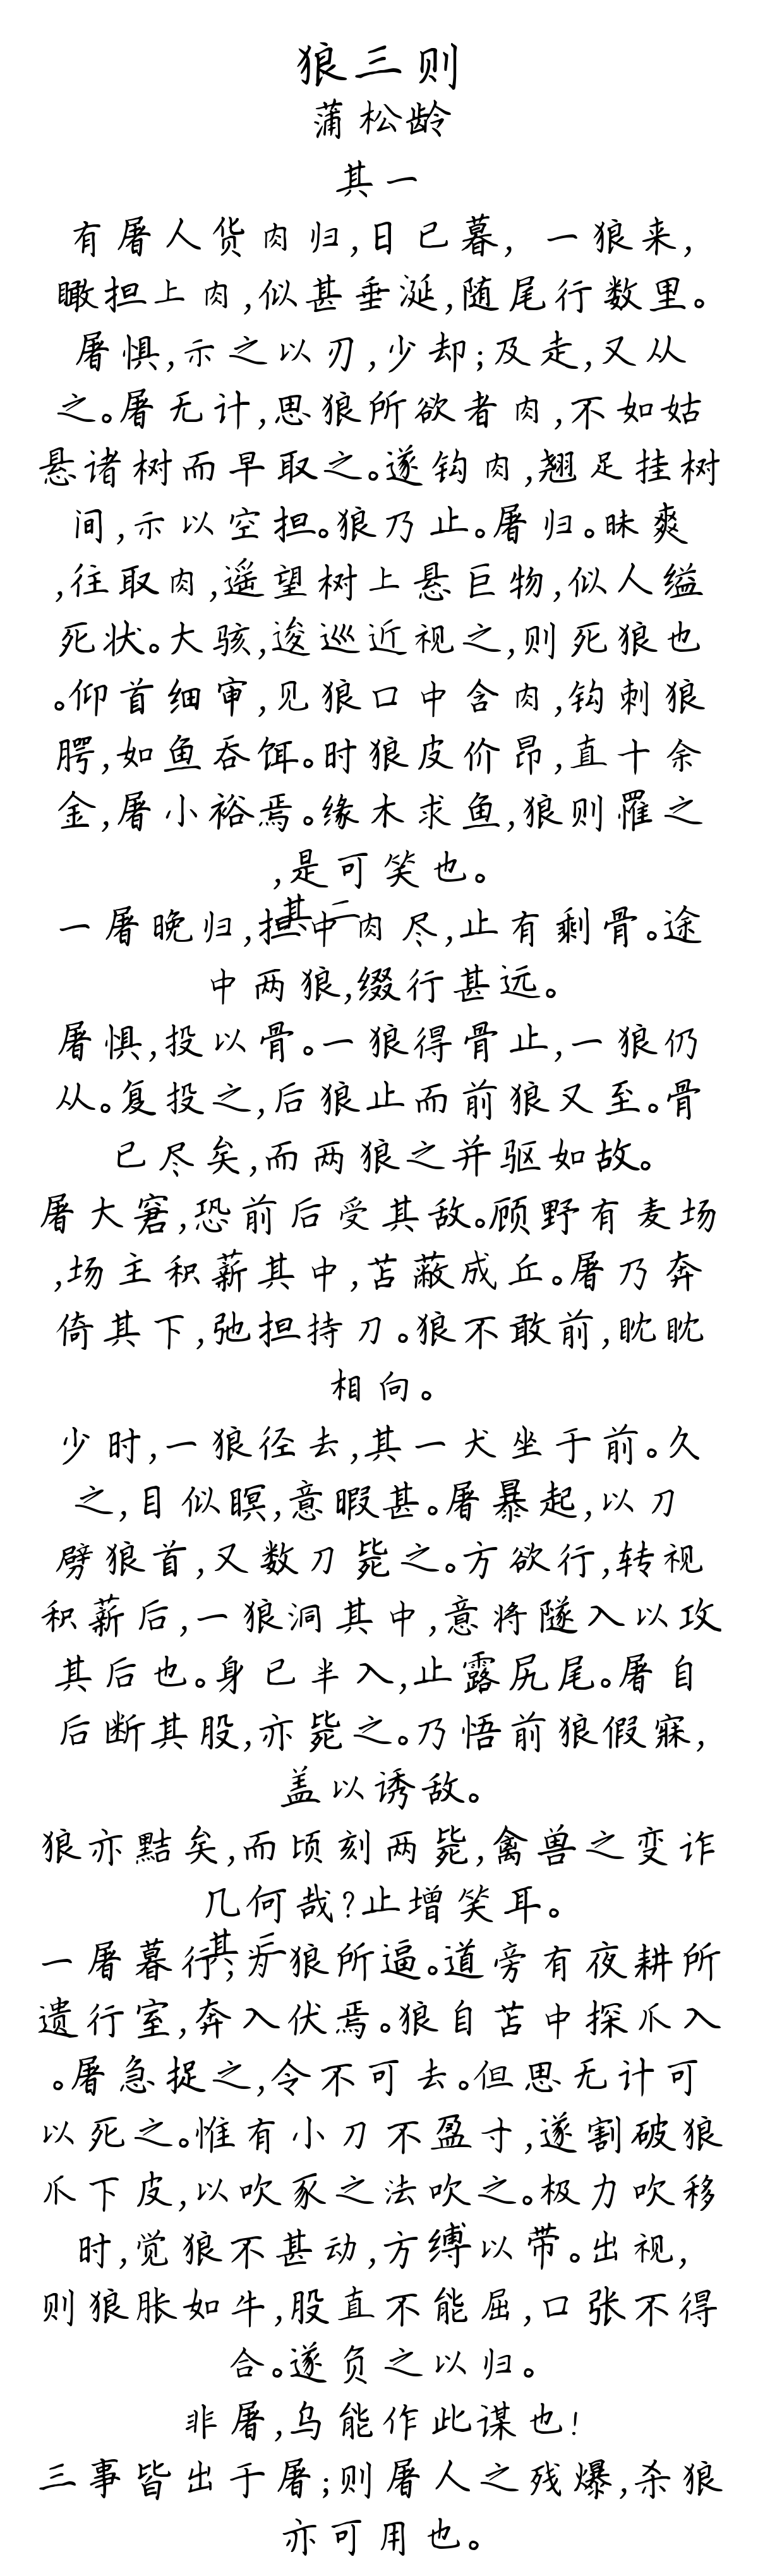 狼三则
蒲松龄
其一
有屠人货肉归,日已暮, 一狼来,
瞰担上肉,似甚垂涎,随尾行数里。
屠惧,示之以刃,少却;及走,又从
之。屠无计,思狼所欲者肉,不如姑
悬诸树而早取之。遂钩肉,翘足挂树
间,示以空担。狼乃止。屠归。昧爽
,往取肉,遥望树上悬巨物,似人缢
死状。大骇,逡巡近视之,则死狼也
。仰首细审,见狼口中含肉,钩刺狼
腭,如鱼吞饵。时狼皮价昂,直十余
金,屠小裕焉。缘木求鱼,狼则罹之
,是可笑也。
其二
一屠晚归,担中肉尽,止有剩骨。途
中两狼,缀行甚远。
屠惧,投以骨。一狼得骨止,一狼仍
从。复投之,后狼止而前狼又至。骨
已尽矣,而两狼之并驱如故。
屠大窘,恐前后受其敌。顾野有麦场
,场主积薪其中,苫蔽成丘。屠乃奔
倚其下,弛担持刀。狼不敢前,眈眈
相向。
少时,一狼径去,其一犬坐于前。久
之,目似瞑,意暇甚。屠暴起,以刀
劈狼首,又数刀毙之。方欲行,转视
积薪后,一狼洞其中,意将隧入以攻
其后也。身已半入,止露尻尾。屠自
后断其股,亦毙之。乃悟前狼假寐,
盖以诱敌。
狼亦黠矣,而顷刻两毙,禽兽之变诈
几何哉?止增笑耳。
其三
一屠暮行,为狼所逼。道旁有夜耕所
遗行室,奔入伏焉。狼自苫中探爪入
。屠急捉之,令不可去。但思无计可
以死之。惟有小刀不盈寸,遂割破狼
爪下皮,以吹豕之法吹之。极力吹移
时,觉狼不甚动,方缚以带。出视,
则狼胀如牛,股直不能屈,口张不得
合。遂负之以归。
非屠,乌能作此谋也!
三事皆出于屠;则屠人之残爆,杀狼
亦可用也。